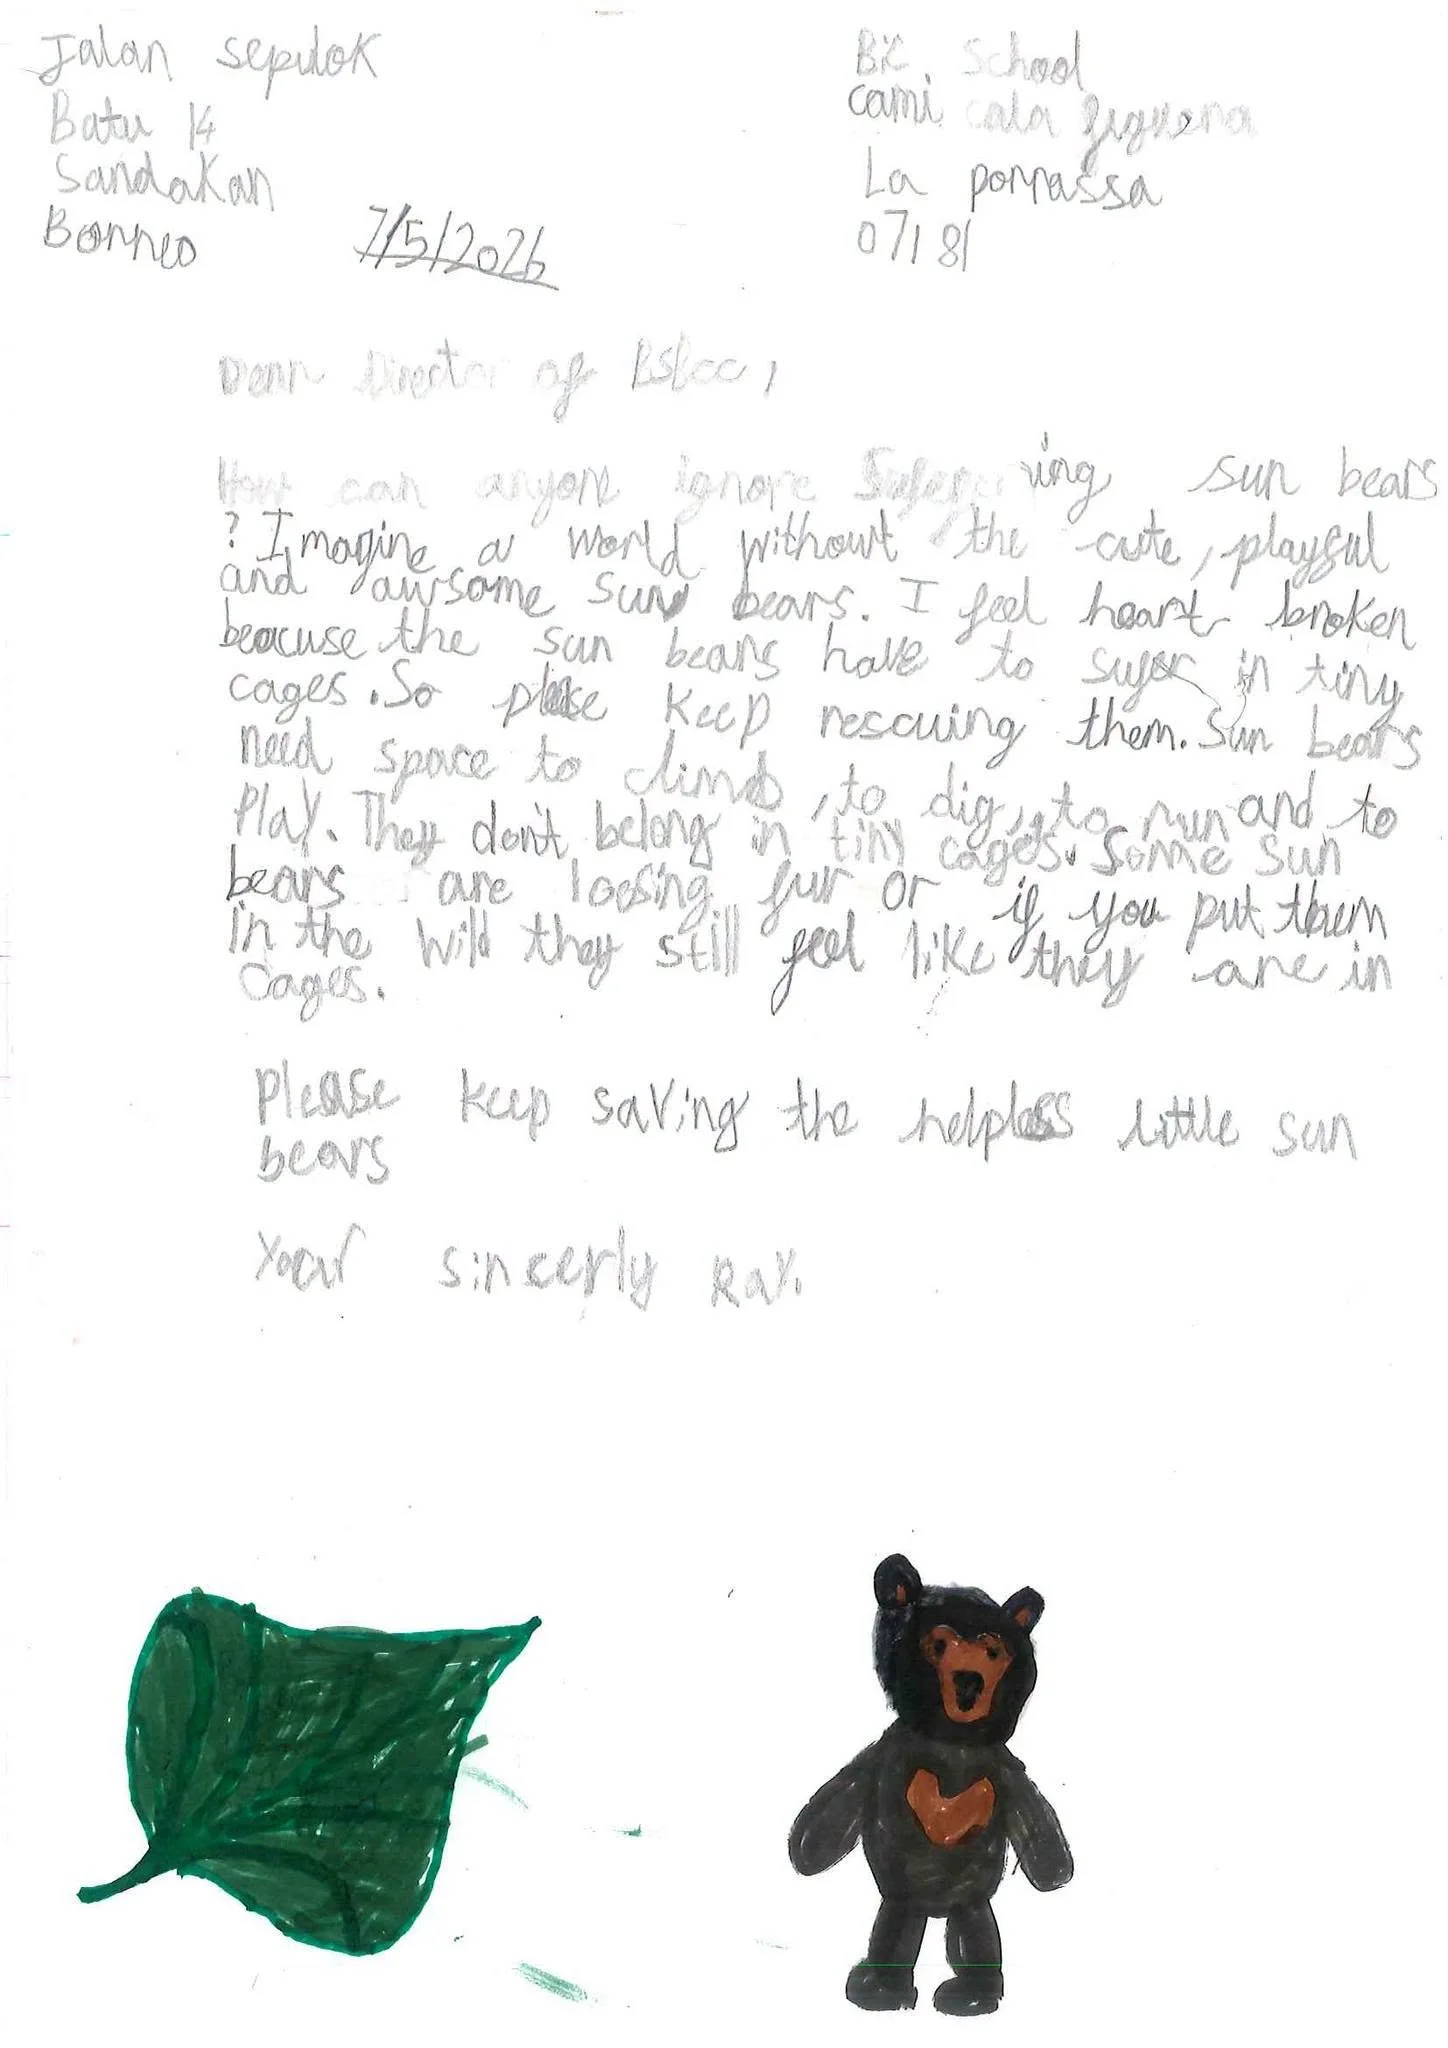 Jalan Sepilok
Batu 14
Sandakan
Borneo
7/5/2026
Bic School
cami cala figuera
La porrassa
07181
Dear Director of BSBCC,
How can anyone ignore ing sun bears
? Imagine a world without the cute, playful
and awsome sun bears. I feel heart broken
beacuse the sun bears have to sufer in tiny
cages. So please keep rescuing them. Sun bears
need space to climb, to dig, to run and to
Play. They don't belong in tiny cages. Some sun
bears are loosing fur or if you put them
in the wild they still feel like they are in
cages.
Please keep saving the helpless little sun
bears
Your sincerly Ray.